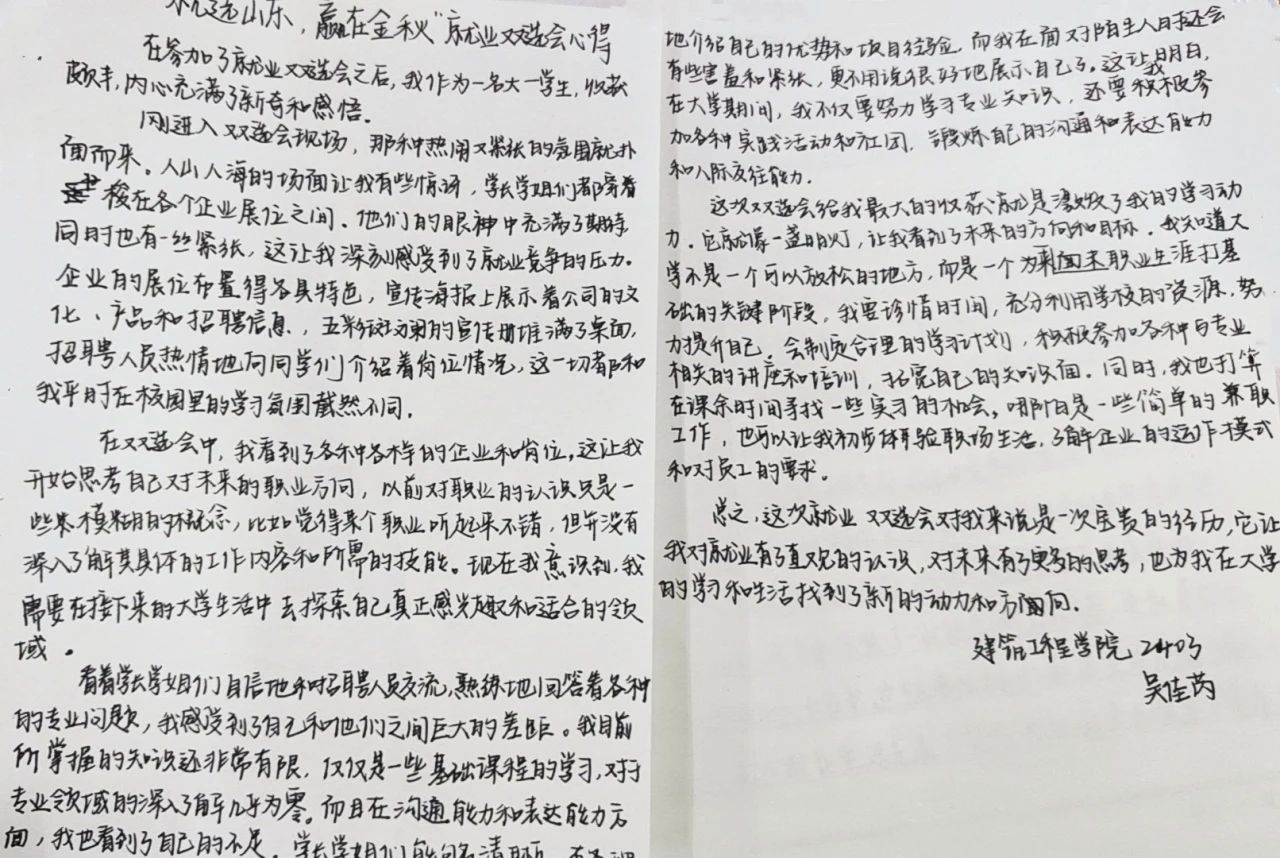 机选山东，赢在金秋”就业双选会心得
在参加了就业双选会之后，我作为一名大一学生，收获
颇丰，内心充满了新奇和感悟。
刚进入双选会现场，那种热闹又紧张的氛围就扑
面而来。人山人海的场面让我有些惊讶，学长学姐们都穿着
梭在各个企业展位之间，他们的眼神中充满了期待
同时也有一丝紧张，这让我深刻感受到了就业竞争的压力。
企业的展位布置得各具特色，宣传海报上展示着公司的文
化、产品和招聘信息，五彩斑斓的宣传册堆满了桌面，
招聘人员热情地向同学们介绍着岗位情况，这一切都和
我平时在校园里的学习氛围截然不同。
在双选会中，我看到了各种各样的企业和岗位，这让我
开始思考自己对未来的职业方向，以前对职业的认识只是一
些模糊的概念，比如觉得某个职业听起来不错，但并没有
深入了解其具体的工作内容和所需的技能。现在我意识到，我
需要在接下来的大学生活中去探索自己真正感兴趣和适合的领
域。
看着学长学姐们自信地和招聘人员交流，熟练地回答着各种
的专业问题，我感受到了自己和他们之间巨大的差距。我目前
所掌握的知识还非常有限，仅仅是一些基础课程的学习，对于
专业领域的深入了解几乎为零。而且在沟通能力和表达能力方
面，我也看到了自己的不足。学长学姐们能够清晰、有条理
地介绍自己的优势和项目经验，而我在面对陌生人时还会
有些害羞和紧张，更不用说很好地展示自己了。这让我明白，
在大学期间，我不仅要努力学习专业知识，还要积极参
加各种实践活动和社团，锻炼自己的沟通和表达能力
和人际交往能力。
这次双选会给我最大的收获就是激发了我的学习动
力。它就像一盏明灯，让我看到了未来的方向和目标。我知道大
学不是一个可以放松的地方，而是一个为未来职业生涯打基
础的关键阶段。我要珍惜时间，充分利用学校的资源，努
力提升自己。会制定合理的学习计划，积极参加各种与专业
相关的讲座和培训，拓宽自己的知识面。同时，我也打算
在课余时间寻找一些实习的机会，哪怕是一些简单的兼职
工作，也可以让我初步体验职场生活，了解企业的运作模式
和对员工的要求。
总之，这次就业双选会对我来说是一次宝贵的经历，它让
我对就业有了直观的认识，对未来有了更多的思考，也为我在大学
的学习和生活找到了新的动力和方向。
建筑工程学院 2403
吴佳芮